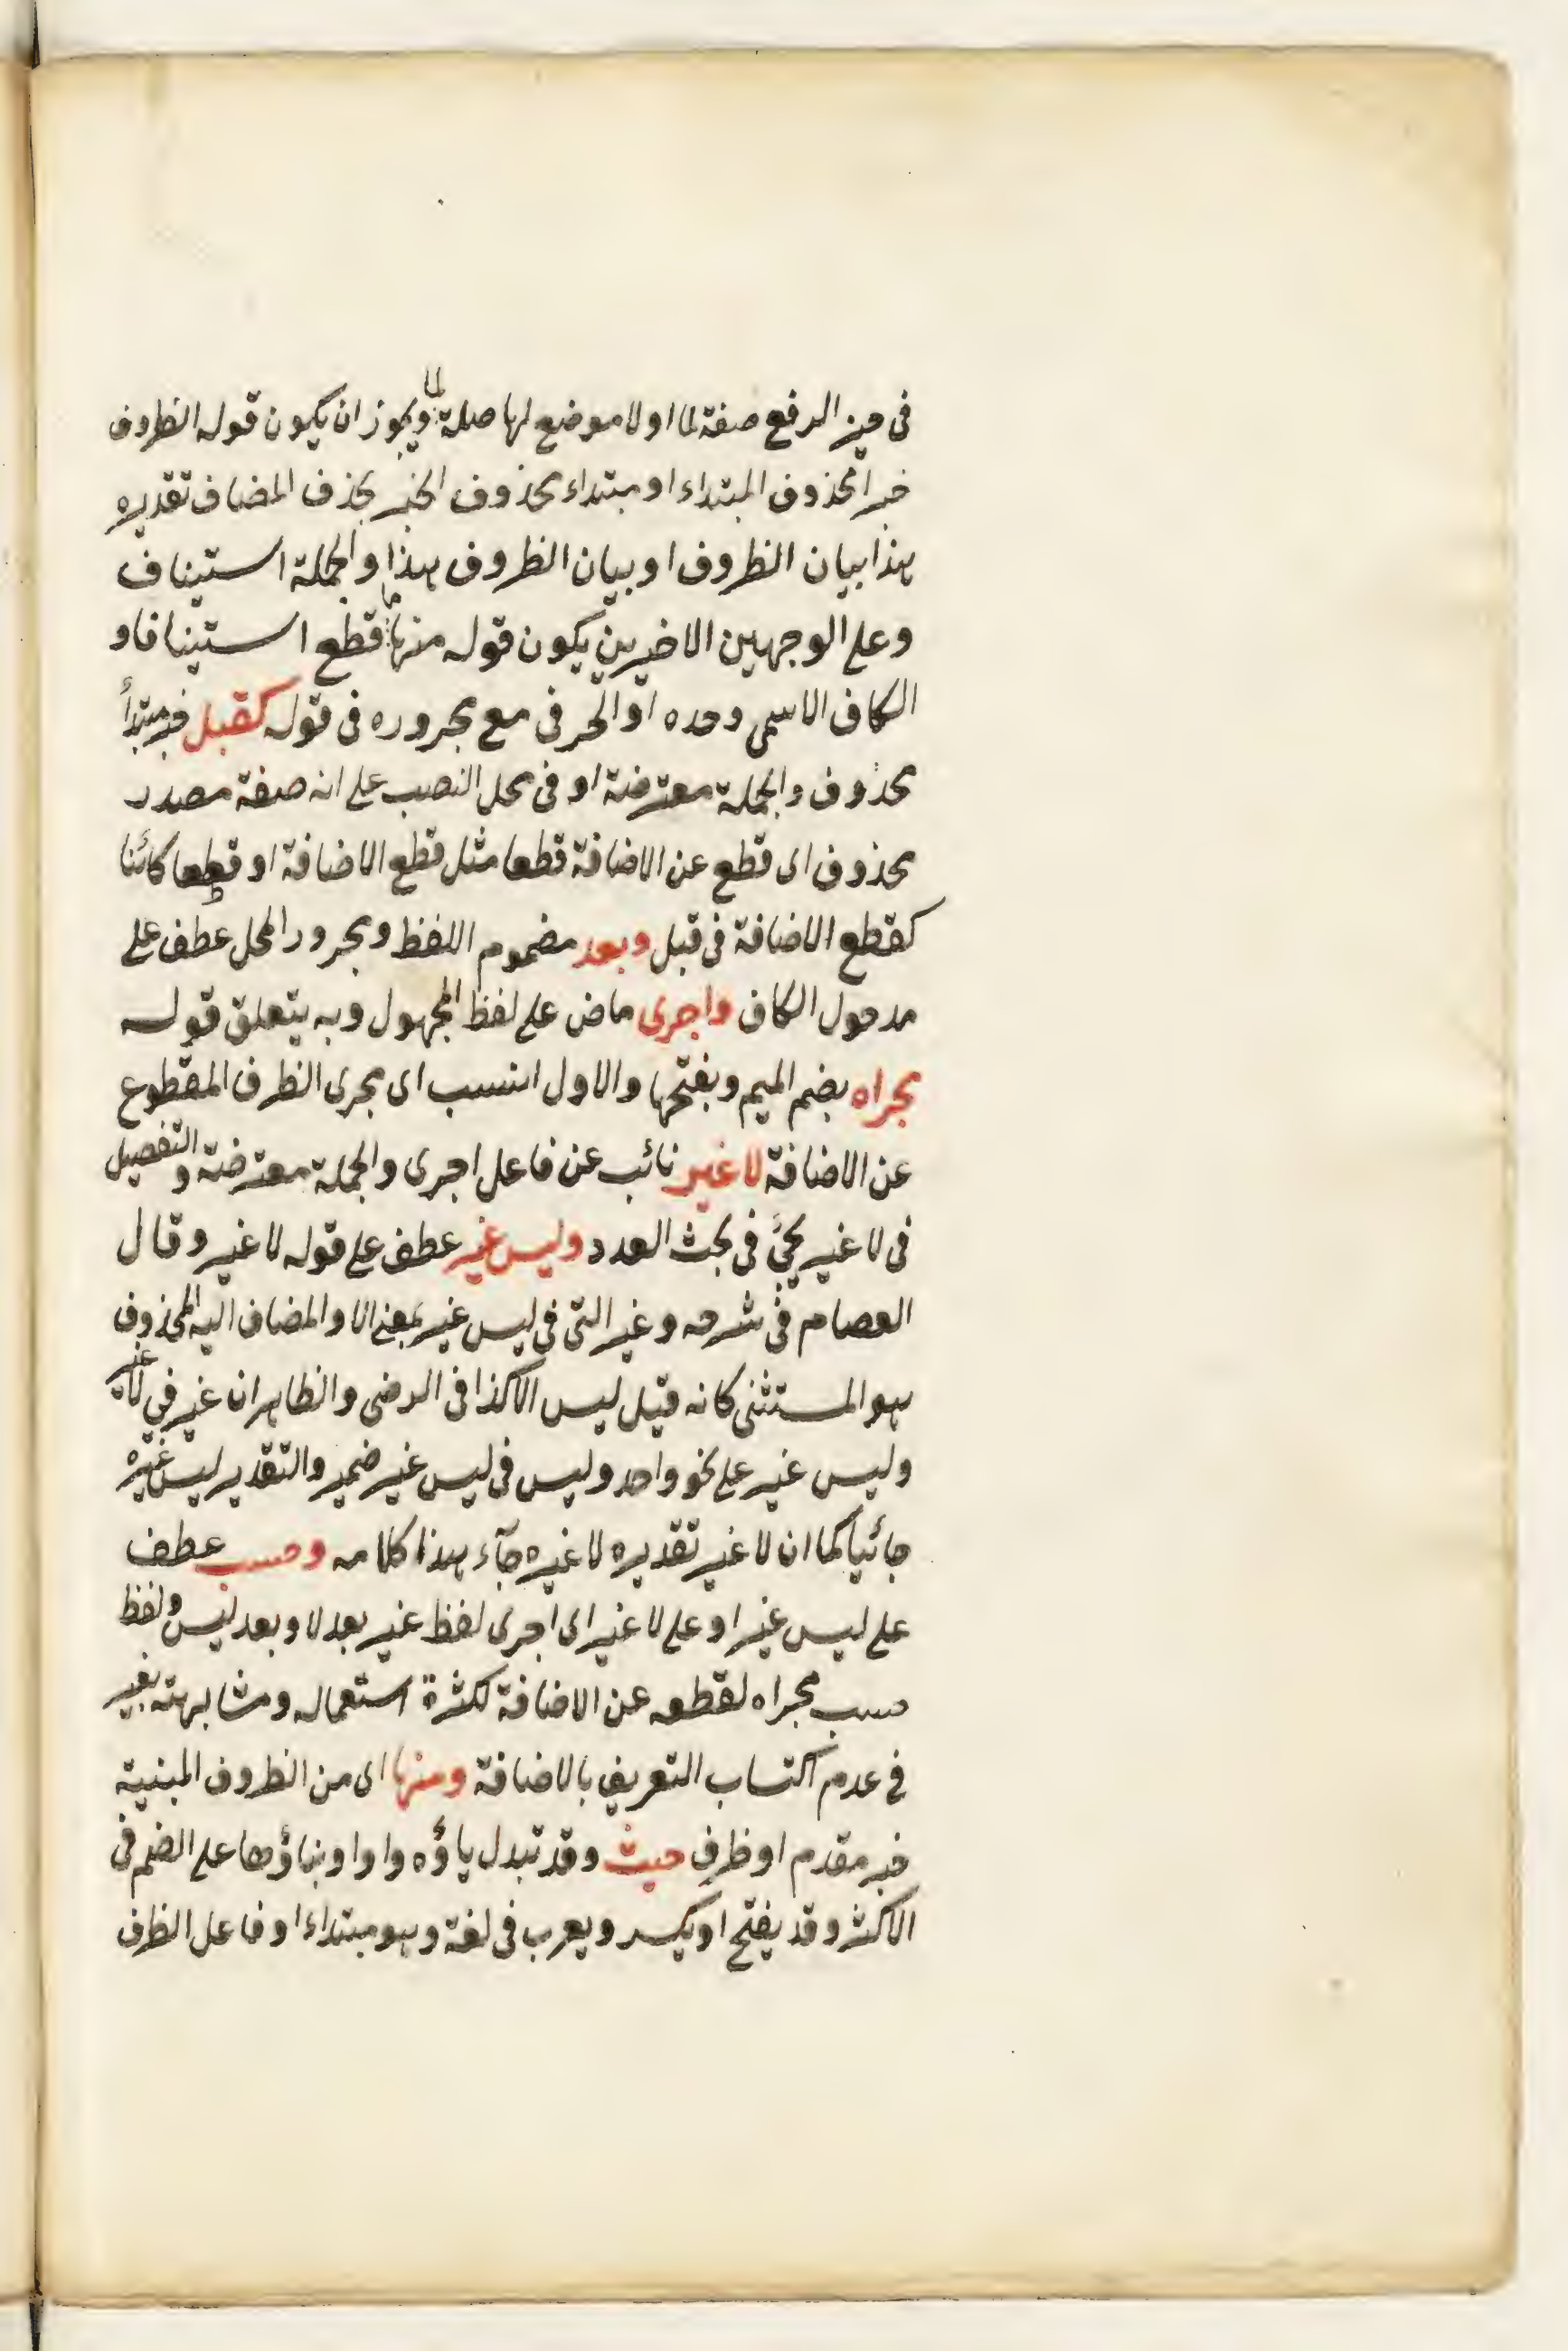 فى حيز الرفع صفة لما او لا موضع لها صلة لما ويجوز ان يكون قوله الظروف
خبرا لمحذوف المبتداء او مبتداء محذوف الخبر بحذف المضاف تقديره
هذا بيان الظروف او بيان الظروف هذا والجملة استيناف
وعلى الوجهين الاخيرين يكون قوله منها ما قطع استينافا و
الكاف الاسمى وحده او الحرفى مع مجروره فى قوله كقبل خبر مبتدأ
محذوف والجملة معترضة او فى محل النصب على انه صفة مصدر
محذوف اى قطع عن الاضافة قطعا مثل قطع الاضافة او قطعا كائنا
كقطع الاضافة فى قبل وبعد مضموم اللفظ ومجرور المحل عطف على
مدخول الكاف واجرى ماض على لفظ المجهول وبه يتعلق قوله
مجراه بضم الميم وبفتحها والاول انسب اى مجرى الظرف المقطوع
عن الاضافة لا غير نائب عن فاعل اجرى والجملة معترضة والتفصيل
فى لا غير يجئ فى بحث العدد وليس غير عطف على قوله لا غير وقال
العصام فى شرحه وغير التى فى ليس غير بمعنى الا والمضاف اليه المحذوف
هو المستثنى كانه قيل ليس الا كذا فى الرضى والظاهر ان غير فى لا غير
وليس غير على نحو واحد وليس فى ليس غير ضمير والتقدير ليس غيره
جائيا كما ان لا غير تقديره لا غيره جآء هذا كلامه وحسب عطف
على ليس غير او على لا غير اى اجرى لفظ غير بعد لا وبعد ليس ولفظ
حسب مجراه لقطعه عن الاضافة لكثرة استعماله ومشابهته بغير
فى عدم اكتساب التعريف بالاضافة ومنها اى من الظروف المبنية
خبر مقدم او ظرف حيث وقد تبدل ياؤه واوا وبناؤها على الضم فى
الاكثر وقد يفتح او يكسر ويعرب فى لغة وهو مبتداء او فاعل الظرف